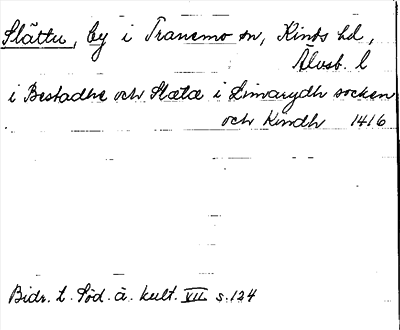 Slättu, by i Tranemo sn, Kinds hd,
Älvsb. l
i Bestadhe och Slætæ i Limarydh socken
och Kindh 1416
Bidr. t. Söd. ä. kult. VII s. 124